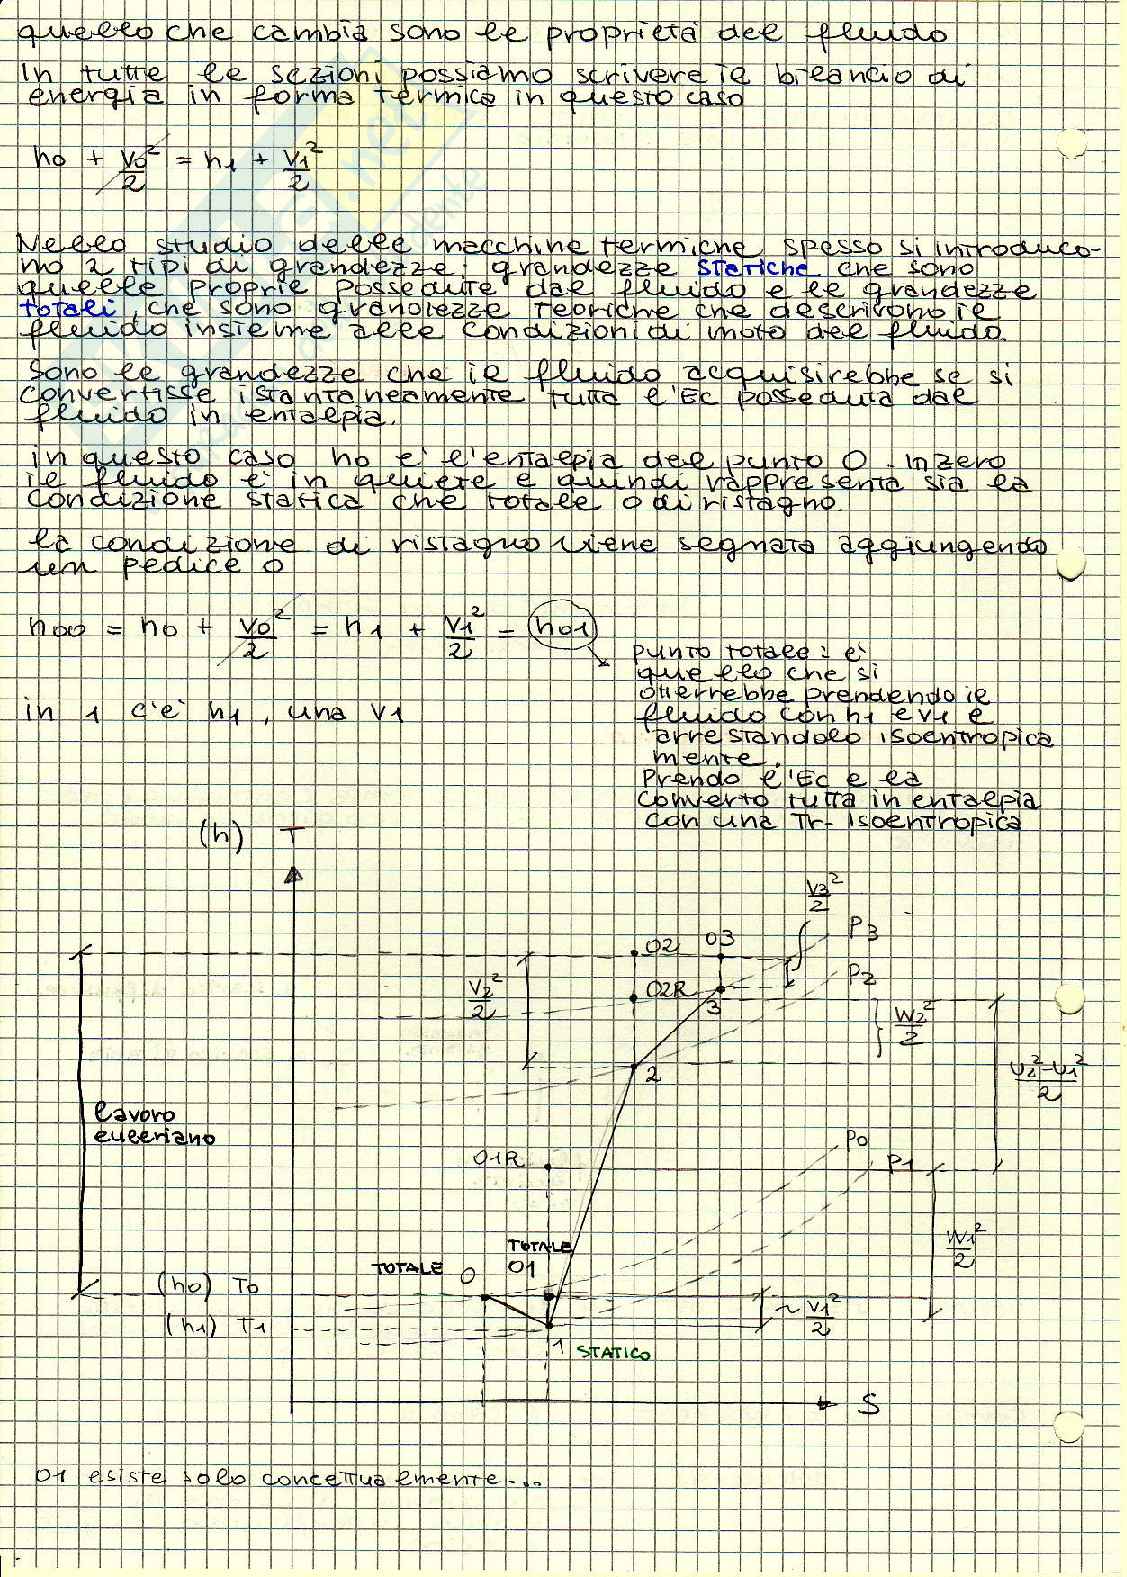 quello che cambia sono le proprietà del fluido
In tutte le sezioni possiamo scrivere il bilancio di
energia in forma termica in questo caso
h0 + V0²/2 = h1 + V1²/2
Nello studio delle macchine termiche spesso si introduco-
no 2 tipi di grandezze: grandezze statiche che sono
quelle proprie possedute dal fluido e le grandezze
totali, che sono grandezze teoriche che descrivono il
fluido insieme alle condizioni di moto del fluido.
Sono le grandezze che il fluido acquisirebbe se si
convertisse istantaneamente tutta l'Ec posseduta dal
fluido in entalpia.
in questo caso h0 è l'entalpia del punto 0. In zero
il fluido è in quiete e quindi rappresenta sia la
condizione statica che totale o di ristagno.
la condizione di ristagno viene segnata aggiungendo
un pedice 0
h00 = h0 + V0²/2 = h1 + V1²/2 = h01
punto totale: è
quello che si
otterrebbe prendendo il
fluido con h1 e v1 e
arrestandolo isoentropica
mente.
Prendo l'Ec e la
converto tutta in entalpia
con una Tr. isoentropica
in 1 c'è h1, una v1
(h) T
V3²/2
P3
02 03
P2
V2²/2
02R
3
W2²/2
2
U2²-U1²/2
lavoro
euleriano
P0
01R
P1
W1²/2
TOTALE
TOTALE 0 01
(h0) T0
~ V1²/2
(h1) T1
1 STATICO
S
01 esiste solo concettualmente...